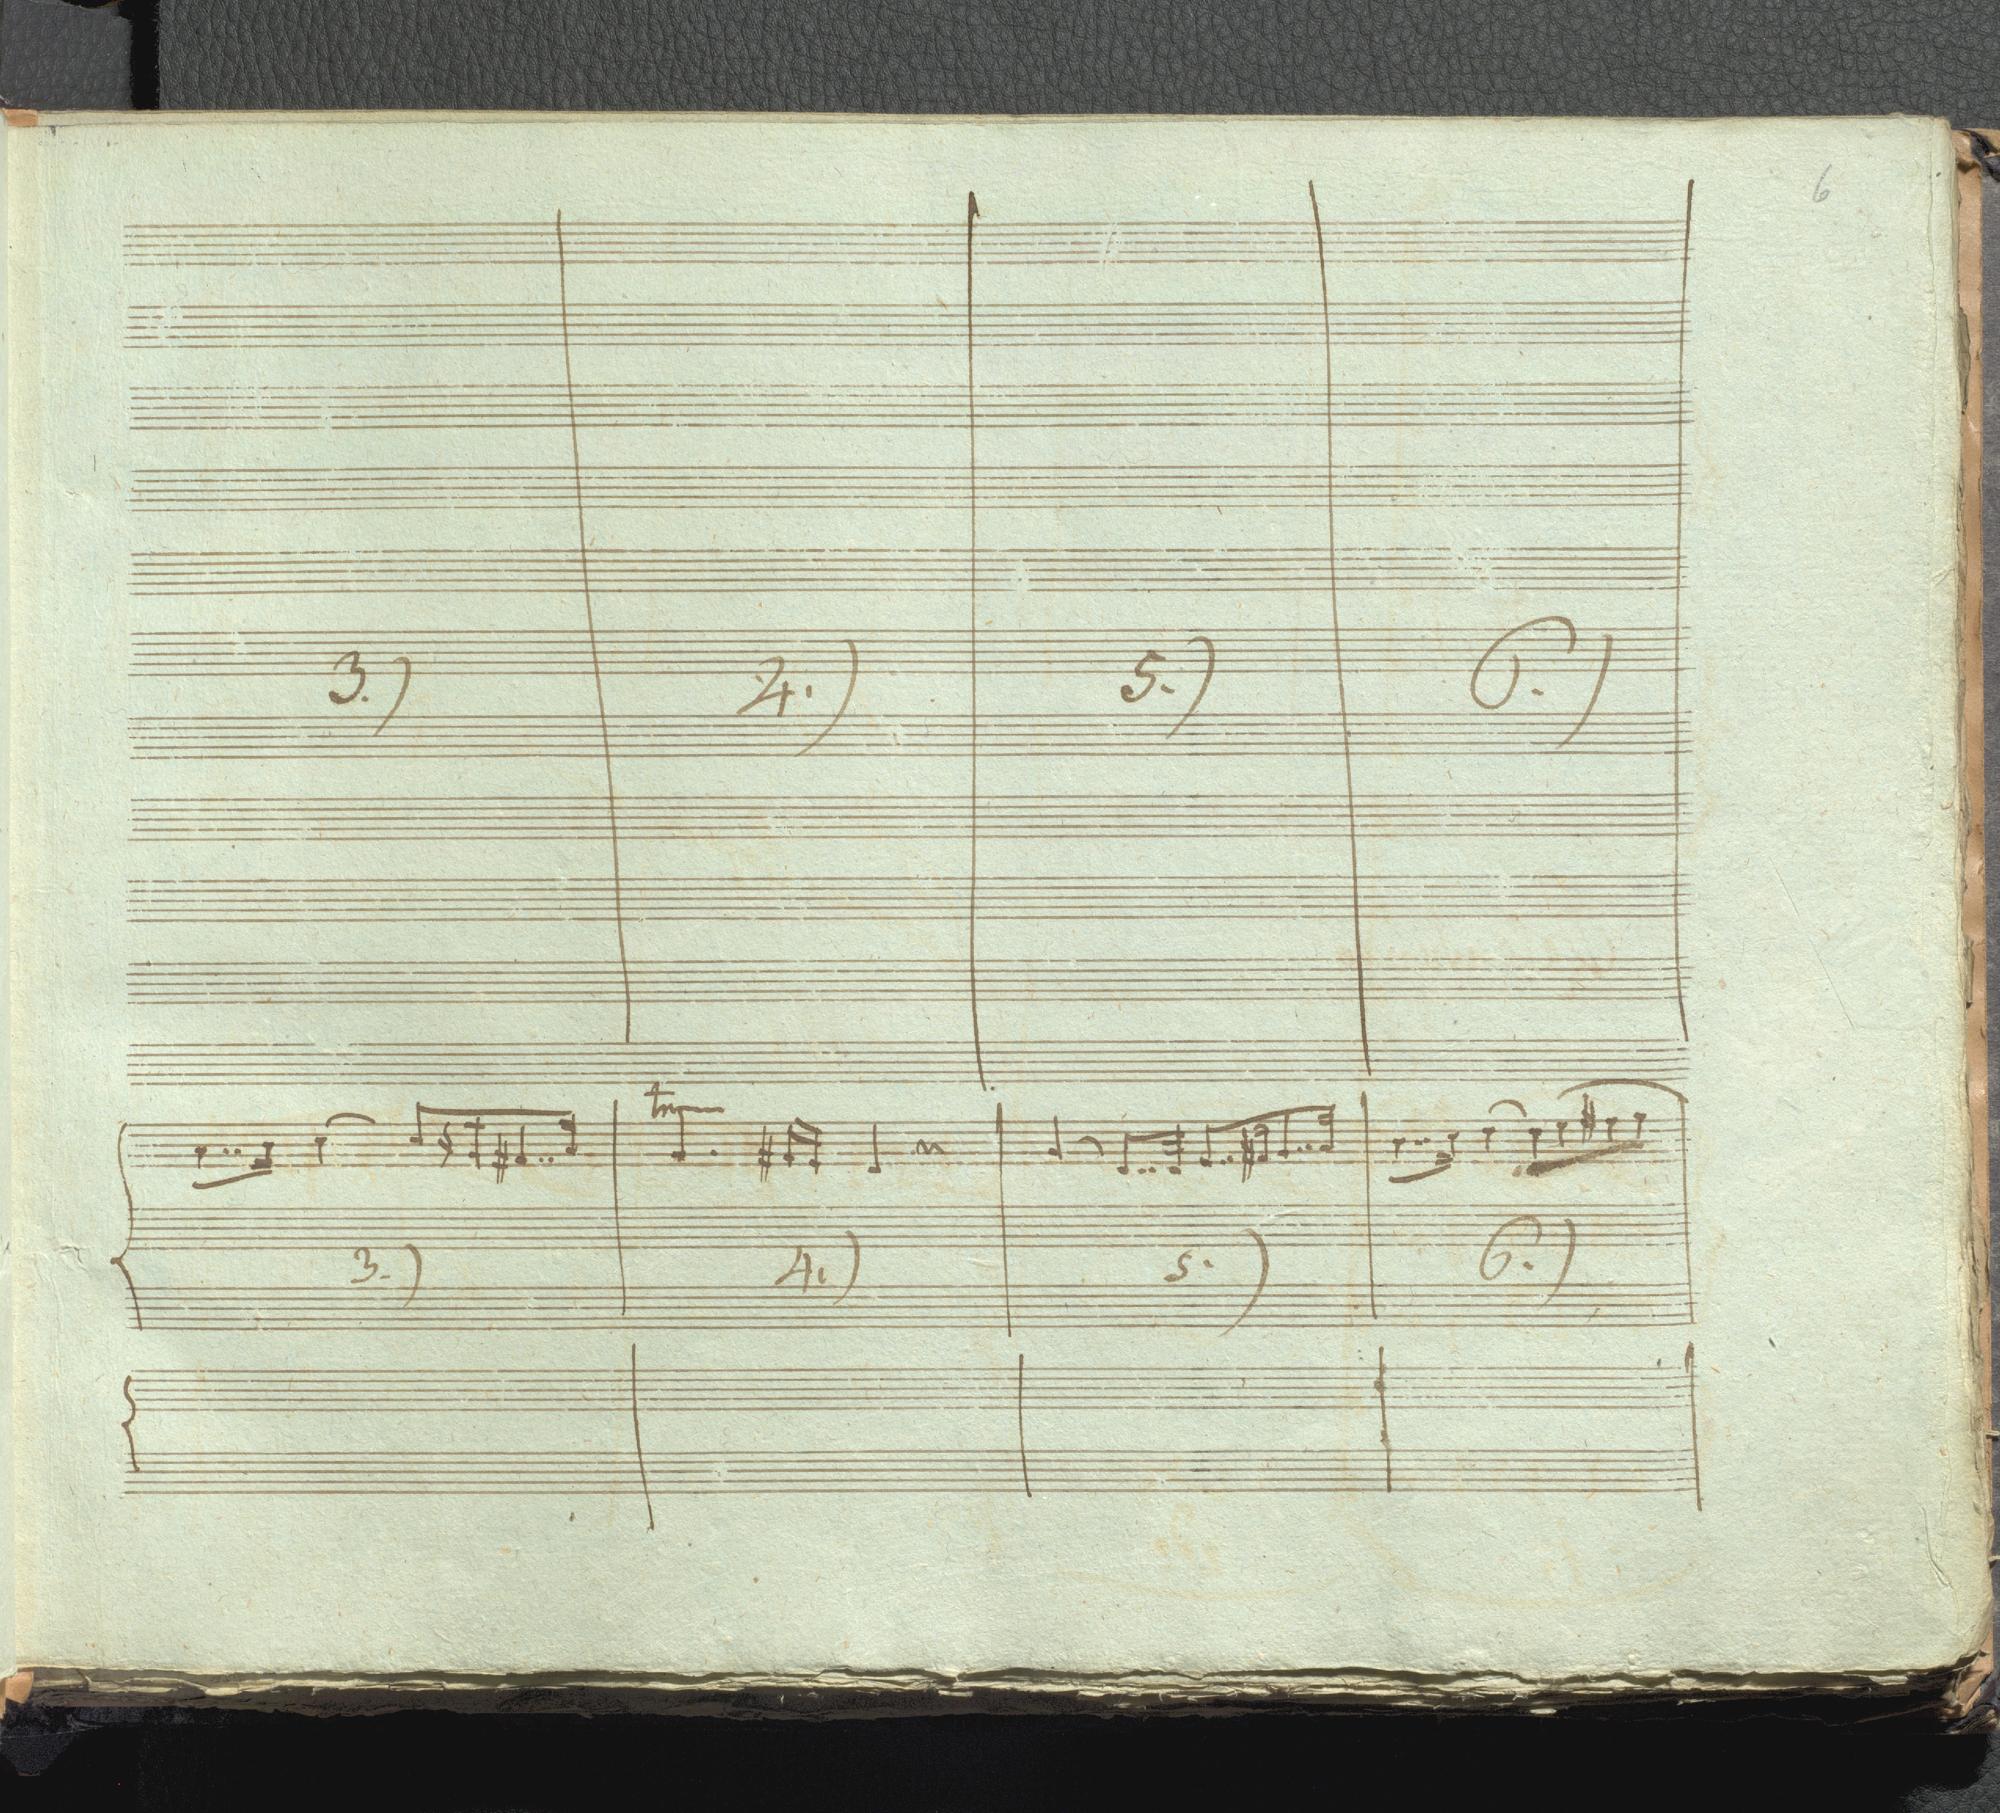 6
3.) 4.) 5.) 6.)
tr
3.) 4.) 5.) 6.)